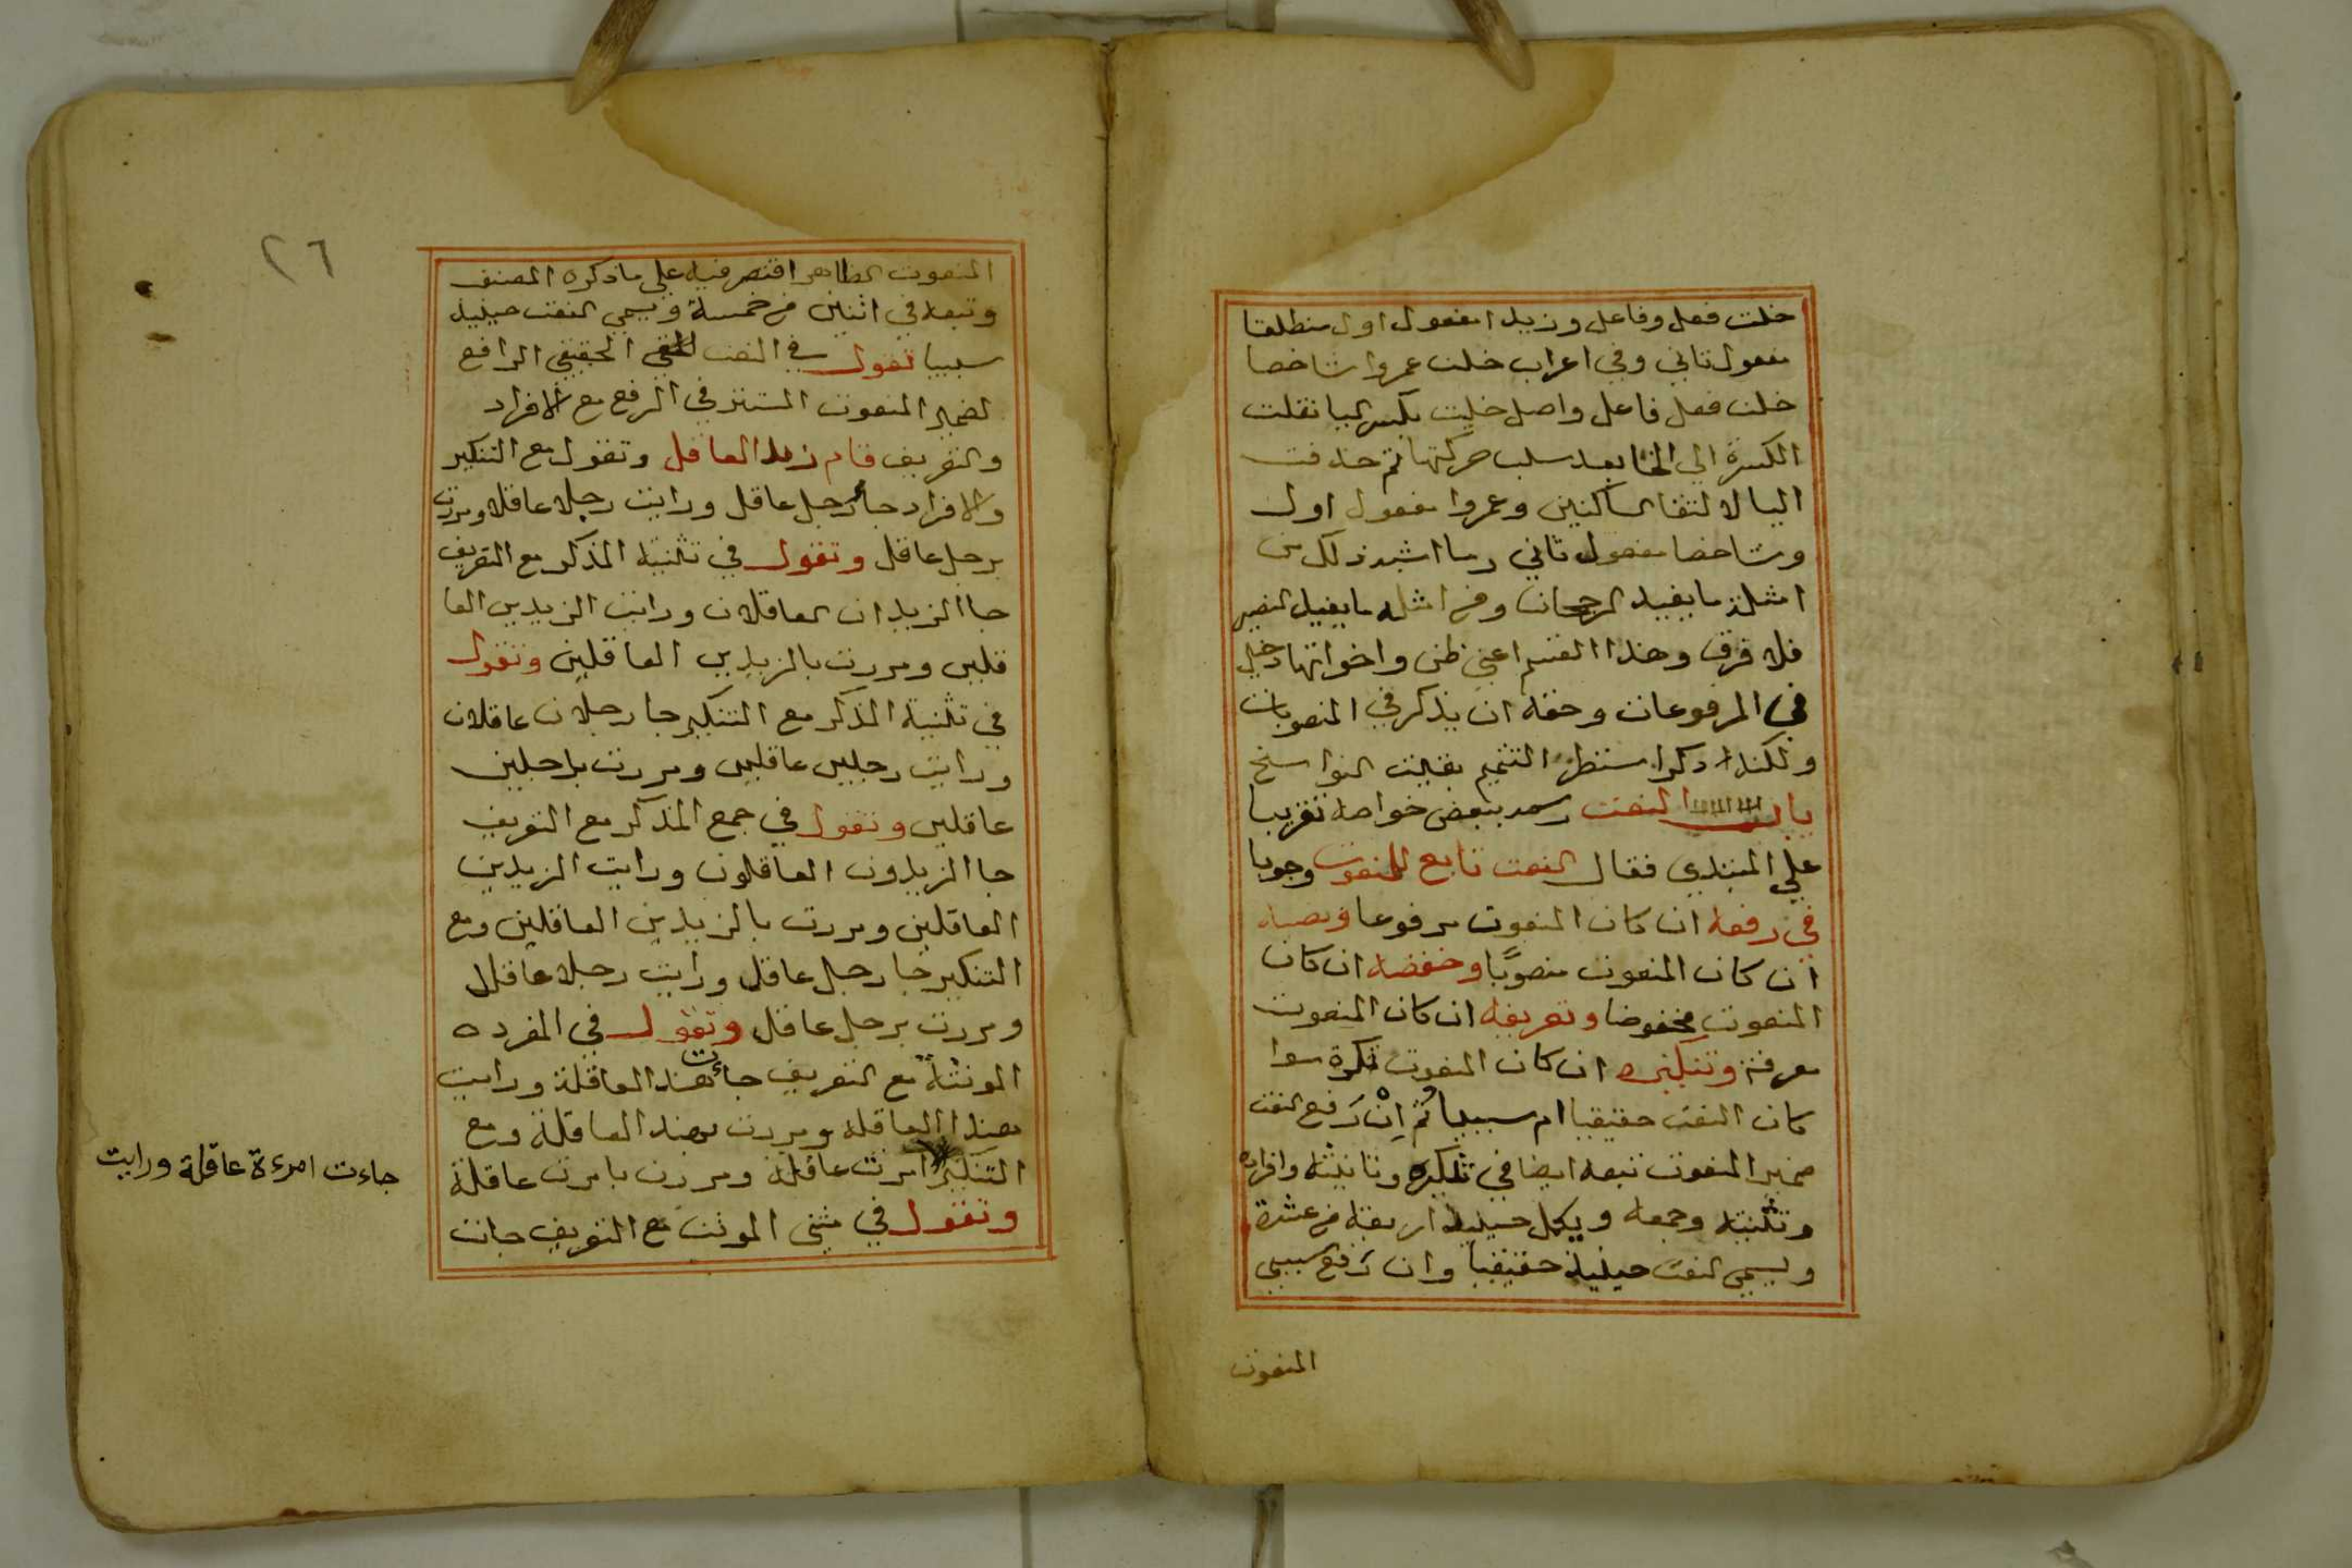 خلت فعل وفاعل وزيدا مفعول اول منطلقا
مفعول ثاني وفي اعراب خلت عمروا شاخصا
خلت فعل فاعل واصل خلت خيلت بكسر اليا نقلت
الكسرة الي الخا بعد سلب حركتها ثم حذفت
اليا لالتقا الساكنين وعمروا مفعول اول
وشاخصا مفعول ثاني وما اشبه ذلك من
امثلة ما يفيد الرجحان ومن امثله ما يفيد التصير
فلا فرق وهذا القسم اعني ظن واخواتها دخيل
في المرفوعات وحقه ان يذكر في المنصوبات
ولكنه ذكر استطرادا لتتميم بقيت النواسخ
باب النعت رسمه ببعض خواصه تقريبا
علي المبتدي فقال النعت تابع للمنعوت وجوبا
في رفعه ان كان المنعوت مرفوعا ونصبه
ان كان المنعوت منصوبًا وخفضه ان كان
المنعوت مخفوضا وتعريفه ان كان المنعوت
معرفة وتنكيره ان كان المنعوت نكرة سوا
كان النعت حقيقيا ام سببيا ثم اِنْ رَفع النعت
ضمير المنعوت تبعه ايضا في تذكيره وتانيثه وافراده
وتثنيته وجمعه ويكمل حينيذ اربعة من عشرة
ويسمي النعت حينيذ حقيقيا وان رَفع سببي
المنعوت
٢٦
المنعوت الظاهر اقتصر فيه علي ما ذكره المصنف
وتبعه في اثنين من خمسة ويسمي النعت حينيذ
سببيا تقول في النعت الحقيقي الرافع
لضمير المنعوت المستتر في الرفع مع الافراد
والتعريف قام زيد العاقل وتقول مع التنكير
والافراد جاء رجل عاقل ورايت رجلا عاقلا ومررت
برجل عاقل وتقول في تثنية المذكر مع التعريف
جا الزيدان العاقلان ورايت الزيدين العا
قلين ومررت بالزيدين العاقلين وتقول
في تثنية المذكر مع التنكير جا رجلان عاقلان
ورايت رجلين عاقلين ومررت برجلين
عاقلين وتقول في جمع المذكر مع التعريف
جا الزيدون العاقلون ورايت الزيدين
العاقلين ومررت بالزيدين العاقلين ومع
التنكير جا رجل عاقل ورايت رجلا عاقلا
ومررت برجل عاقل وتقول في المفرده
المونثة مع التعريف جاءت هند العاقلة ورايت
هندا العاقلة ومررت بهند العاقلة ومع
التنكير امرت عاقلة ومررت بامرت عاقلة
جاءت امرءة عاقلة ورايت
وتقول في مثني المونث مع التعريف جات